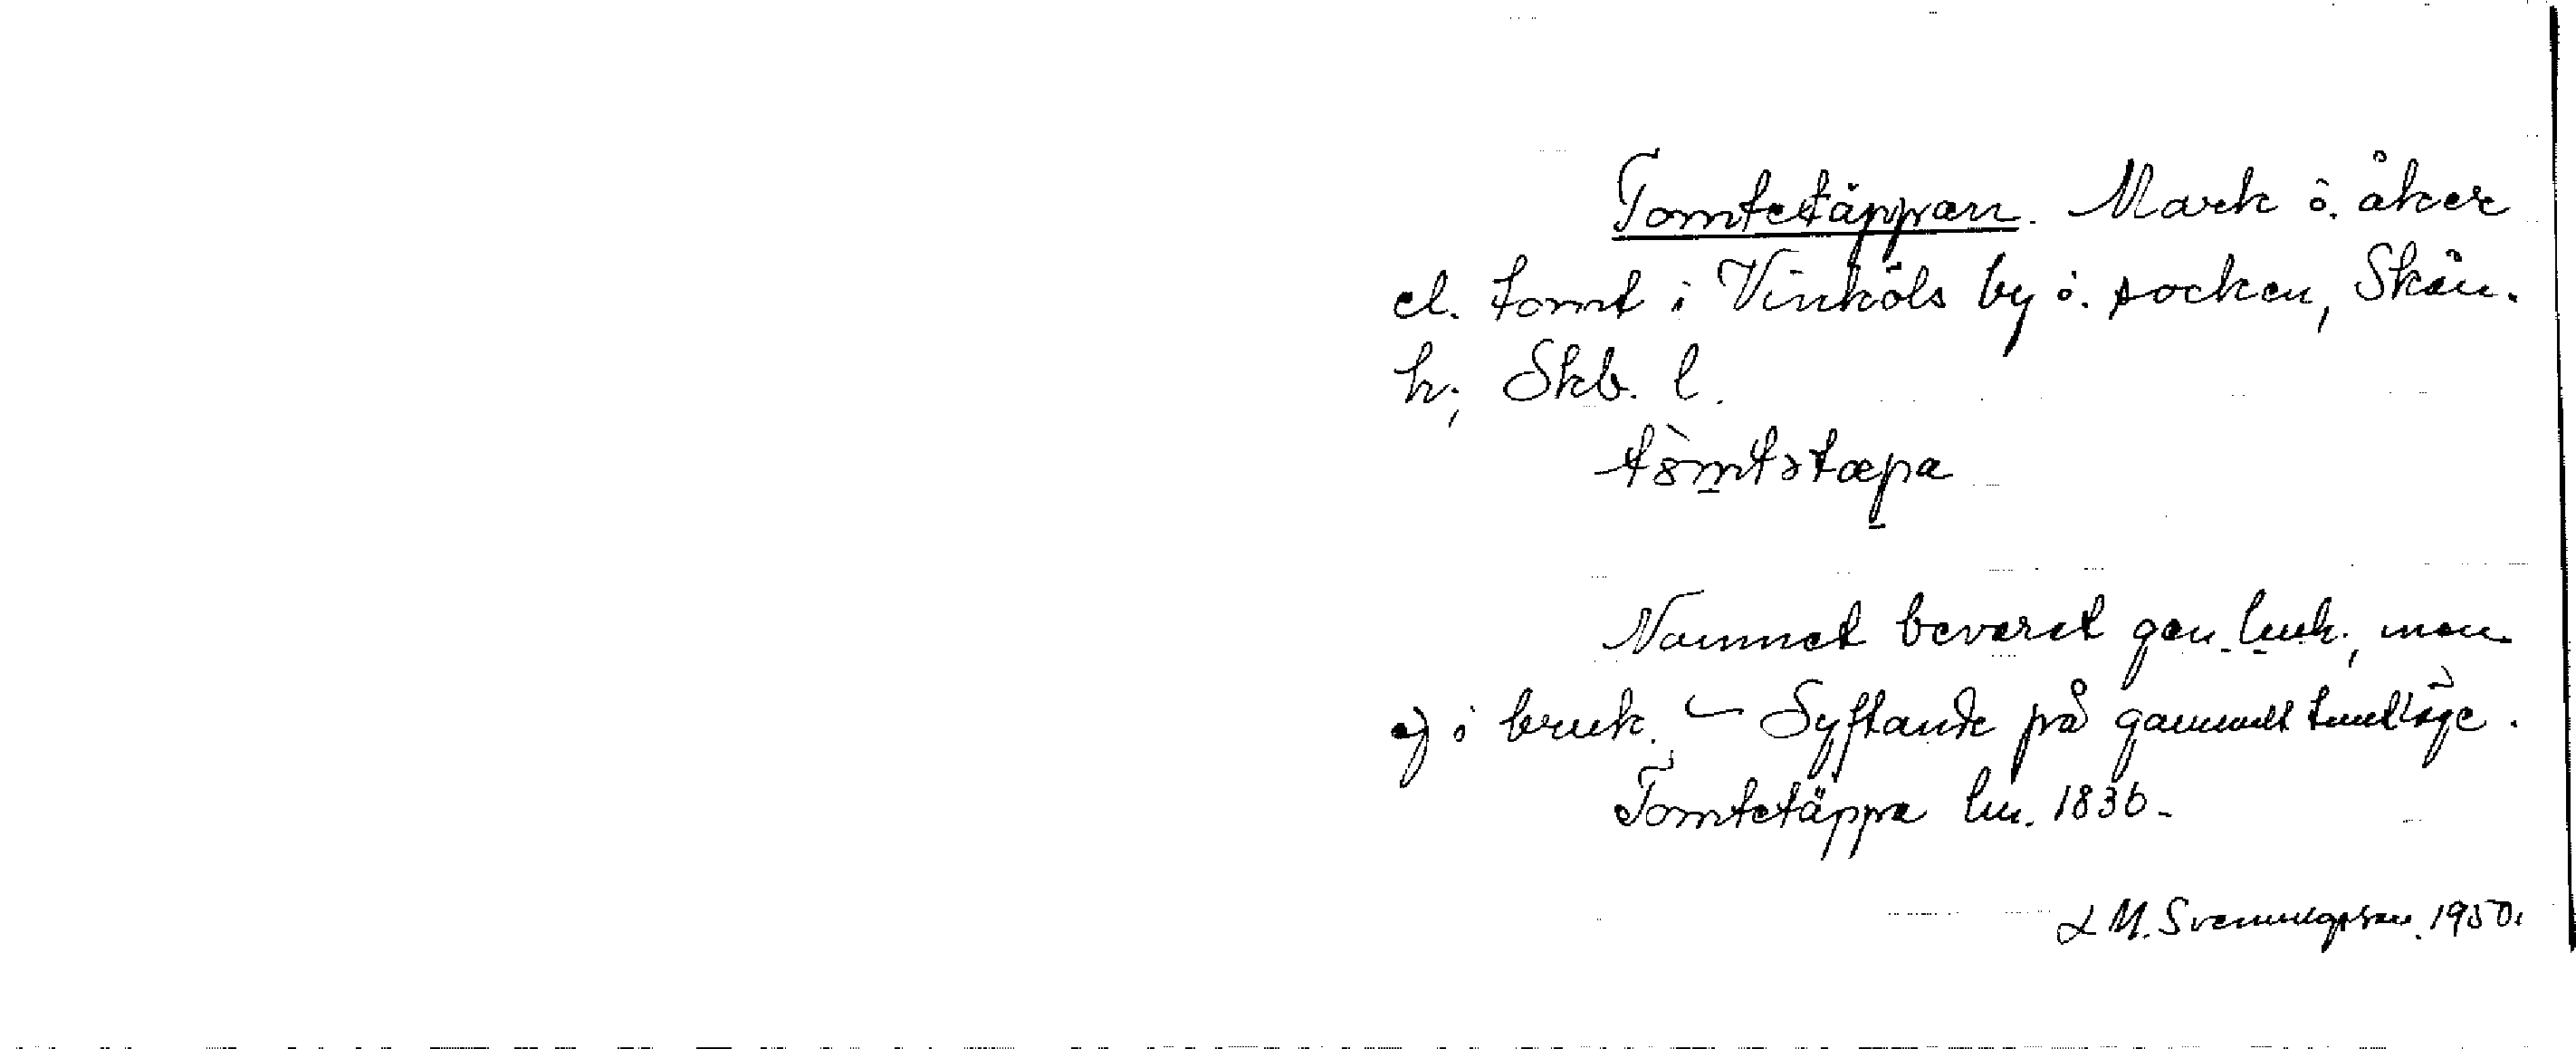 Tomtetäppan. Mark o. åker
el. tomt i Vinköls by o. socken, Skån.
h., Skb. l.
tòmtətæpa
Namnet bevarat gen. lmh., men
ej i bruk. – Syftande på gammalt tomtläge.
Tomtetäppa lm. 1836.
L M. Svenungsson. 1950.